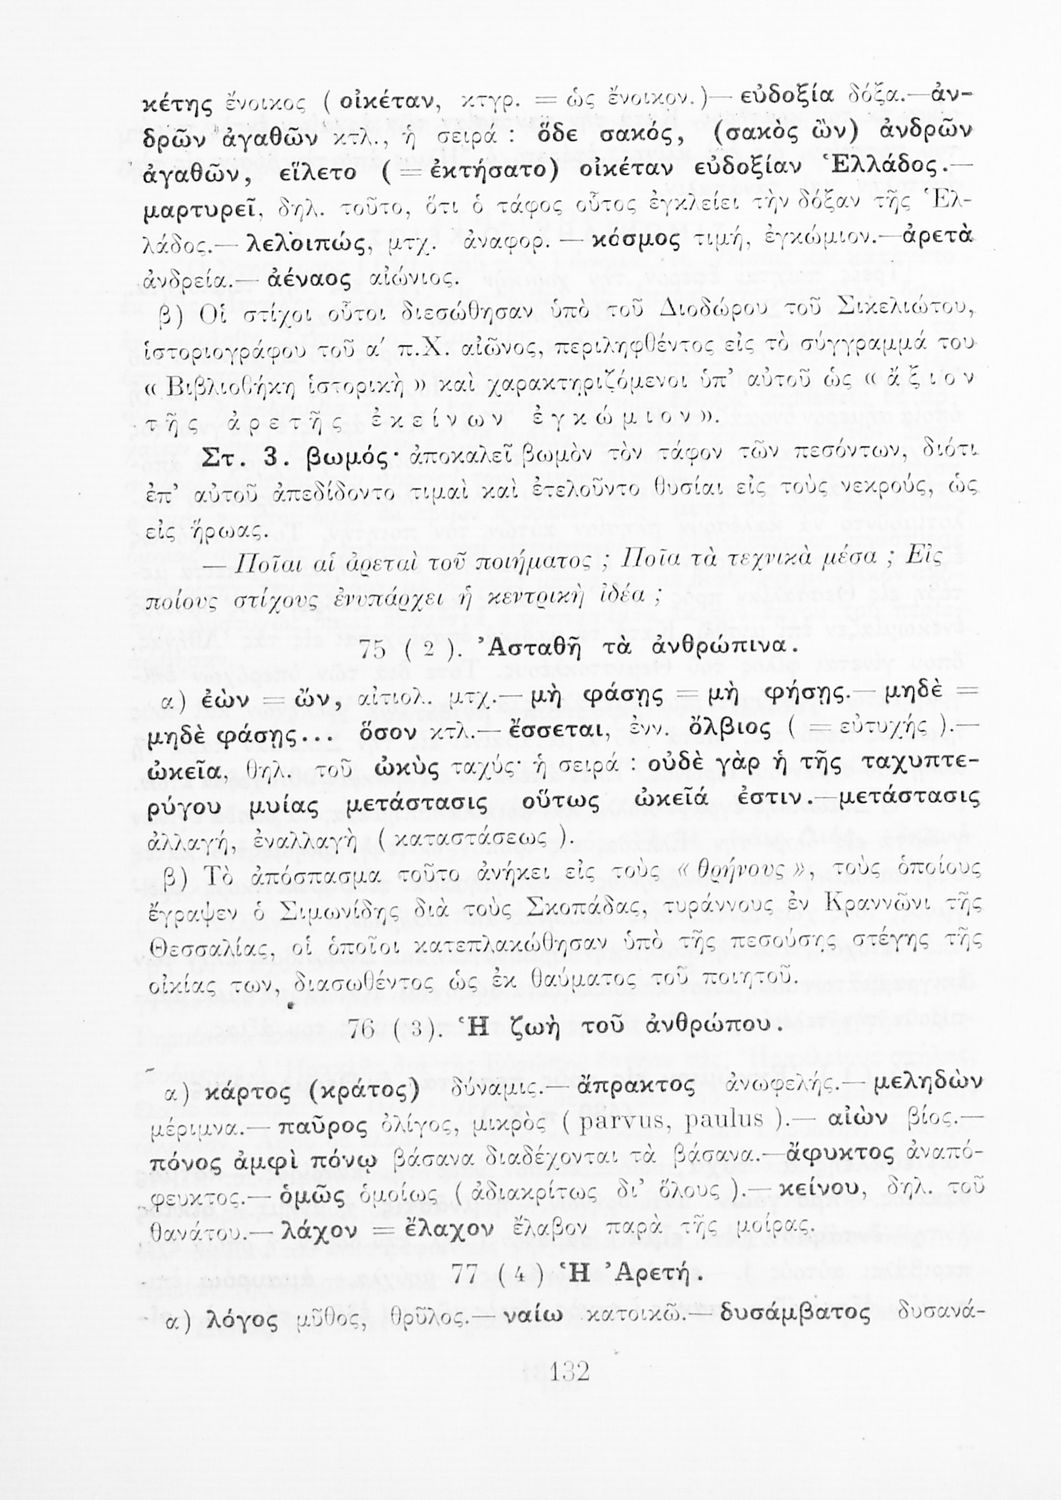 κέτης ἔνοικος ( οἰκέταν, κτγρ. = ὡς ἔνοικον.)— εὐδοξία δόξα.—ἀν-
δρῶν ἀγαθῶν κτλ., ἡ σειρά : ὅδε σακός, (σακὸς ὢν) ἀνδρῶν
ἀγαθῶν, εἵλετο ( = ἐκτήσατο) οἰκέταν εὐδοξίαν Ἑλλάδος.—
μαρτυρεῖ, δηλ. τοῦτο, ὅτι ὁ τάφος οὗτος ἐγκλείει τὴν δόξαν τῆς Ἑλ-
λάδος.— λελοιπώς, μτχ. ἀναφορ. — κόσμος τιμή, ἐγκώμιον.—ἀρετὰ
ἀνδρεία.— ἀέναος αἰώνιος.
β) Οἱ στίχοι οὗτοι διεσώθησαν ὑπὸ τοῦ Διοδώρου τοῦ Σικελιώτου,
ἱστοριογράφου τοῦ α΄ π.Χ. αἰῶνος, περιληφθέντος εἰς τὸ σύγγραμμά του
« Βιβλιοθήκη ἱστορικὴ » καὶ χαρακτηριζόμενοι ὑπ’ αὐτοῦ ὡς « ἄξιον
τῆς ἀρετῆς ἐκείνων ἐγκώμιον».
Στ. 3. βωμός· ἀποκαλεῖ βωμὸν τὸν τάφον τῶν πεσόντων, διότι
ἐπ’ αὐτοῦ ἀπεδίδοντο τιμαὶ καὶ ἐτελοῦντο θυσίαι εἰς τοὺς νεκρούς, ὡς
εἰς ἥρωας.
— Ποῖαι αἱ ἀρεταὶ τοῦ ποιήματος ; Ποῖα τὰ τεχνικὰ μέσα ; Εἰς
ποίους στίχους ἐνυπάρχει ἡ κεντρικὴ ἰδέα ;
75 ( 2 ). Ἀσταθῆ τὰ ἀνθρώπινα.
α) ἐὼν = ὤν, αἰτιολ. μτχ.— μὴ φάσῃς = μὴ φήσῃς.— μηδὲ =
μηδὲ φάσῃς... ὅσον κτλ.— ἔσσεται, ἐνν. ὄλβιος ( = εὐτυχής ).—
ὠκεῖα, θηλ. τοῦ ὠκὺς ταχύς· ἡ σειρά : οὐδὲ γὰρ ἡ τῆς ταχυπτε-
ρύγου μυίας μετάστασις οὕτως ὠκεῖά ἐστιν.—μετάστασις
ἀλλαγή, ἐναλλαγὴ ( καταστάσεως ).
β) Τὸ ἀπόσπασμα τοῦτο ἀνήκει εἰς τοὺς « θρήνους », τοὺς ὁποίους
ἔγραψεν ὁ Σιμωνίδης διὰ τοὺς Σκοπάδας, τυράννους ἐν Κραννῶνι τῆς
Θεσσαλίας, οἱ ὁποῖοι κατεπλακώθησαν ὑπὸ τῆς πεσούσης στέγης τῆς
οἰκίας των, διασωθέντος ὡς ἐκ θαύματος τοῦ ποιητοῦ.
76 ( 3). Ἡ ζωὴ τοῦ ἀνθρώπου.
α) κάρτος (κράτος) δύναμις.— ἄπρακτος ἀνωφελής.— μεληδὼν
μέριμνα.— παῦρος ὀλίγος, μικρὸς ( parvus, paulus ).— αἰὼν βίος.—
πόνος ἀμφὶ πόνῳ βάσανα διαδέχονται τὰ βάσανα.—ἄφυκτος ἀναπό-
φευκτος.— ὁμῶς ὁμοίως ( ἀδιακρίτως δι’ ὅλους ).— κείνου, δηλ. τοῦ
θανάτου.— λάχον = ἔλαχον ἔλαβον παρὰ τῆς μοίρας.
77 ( 4 ) Ἡ Ἀρετή.
α) λόγος μῦθος, θρῦλος.— ναίω κατοικῶ.— δυσάμβατος δυσανά-
132